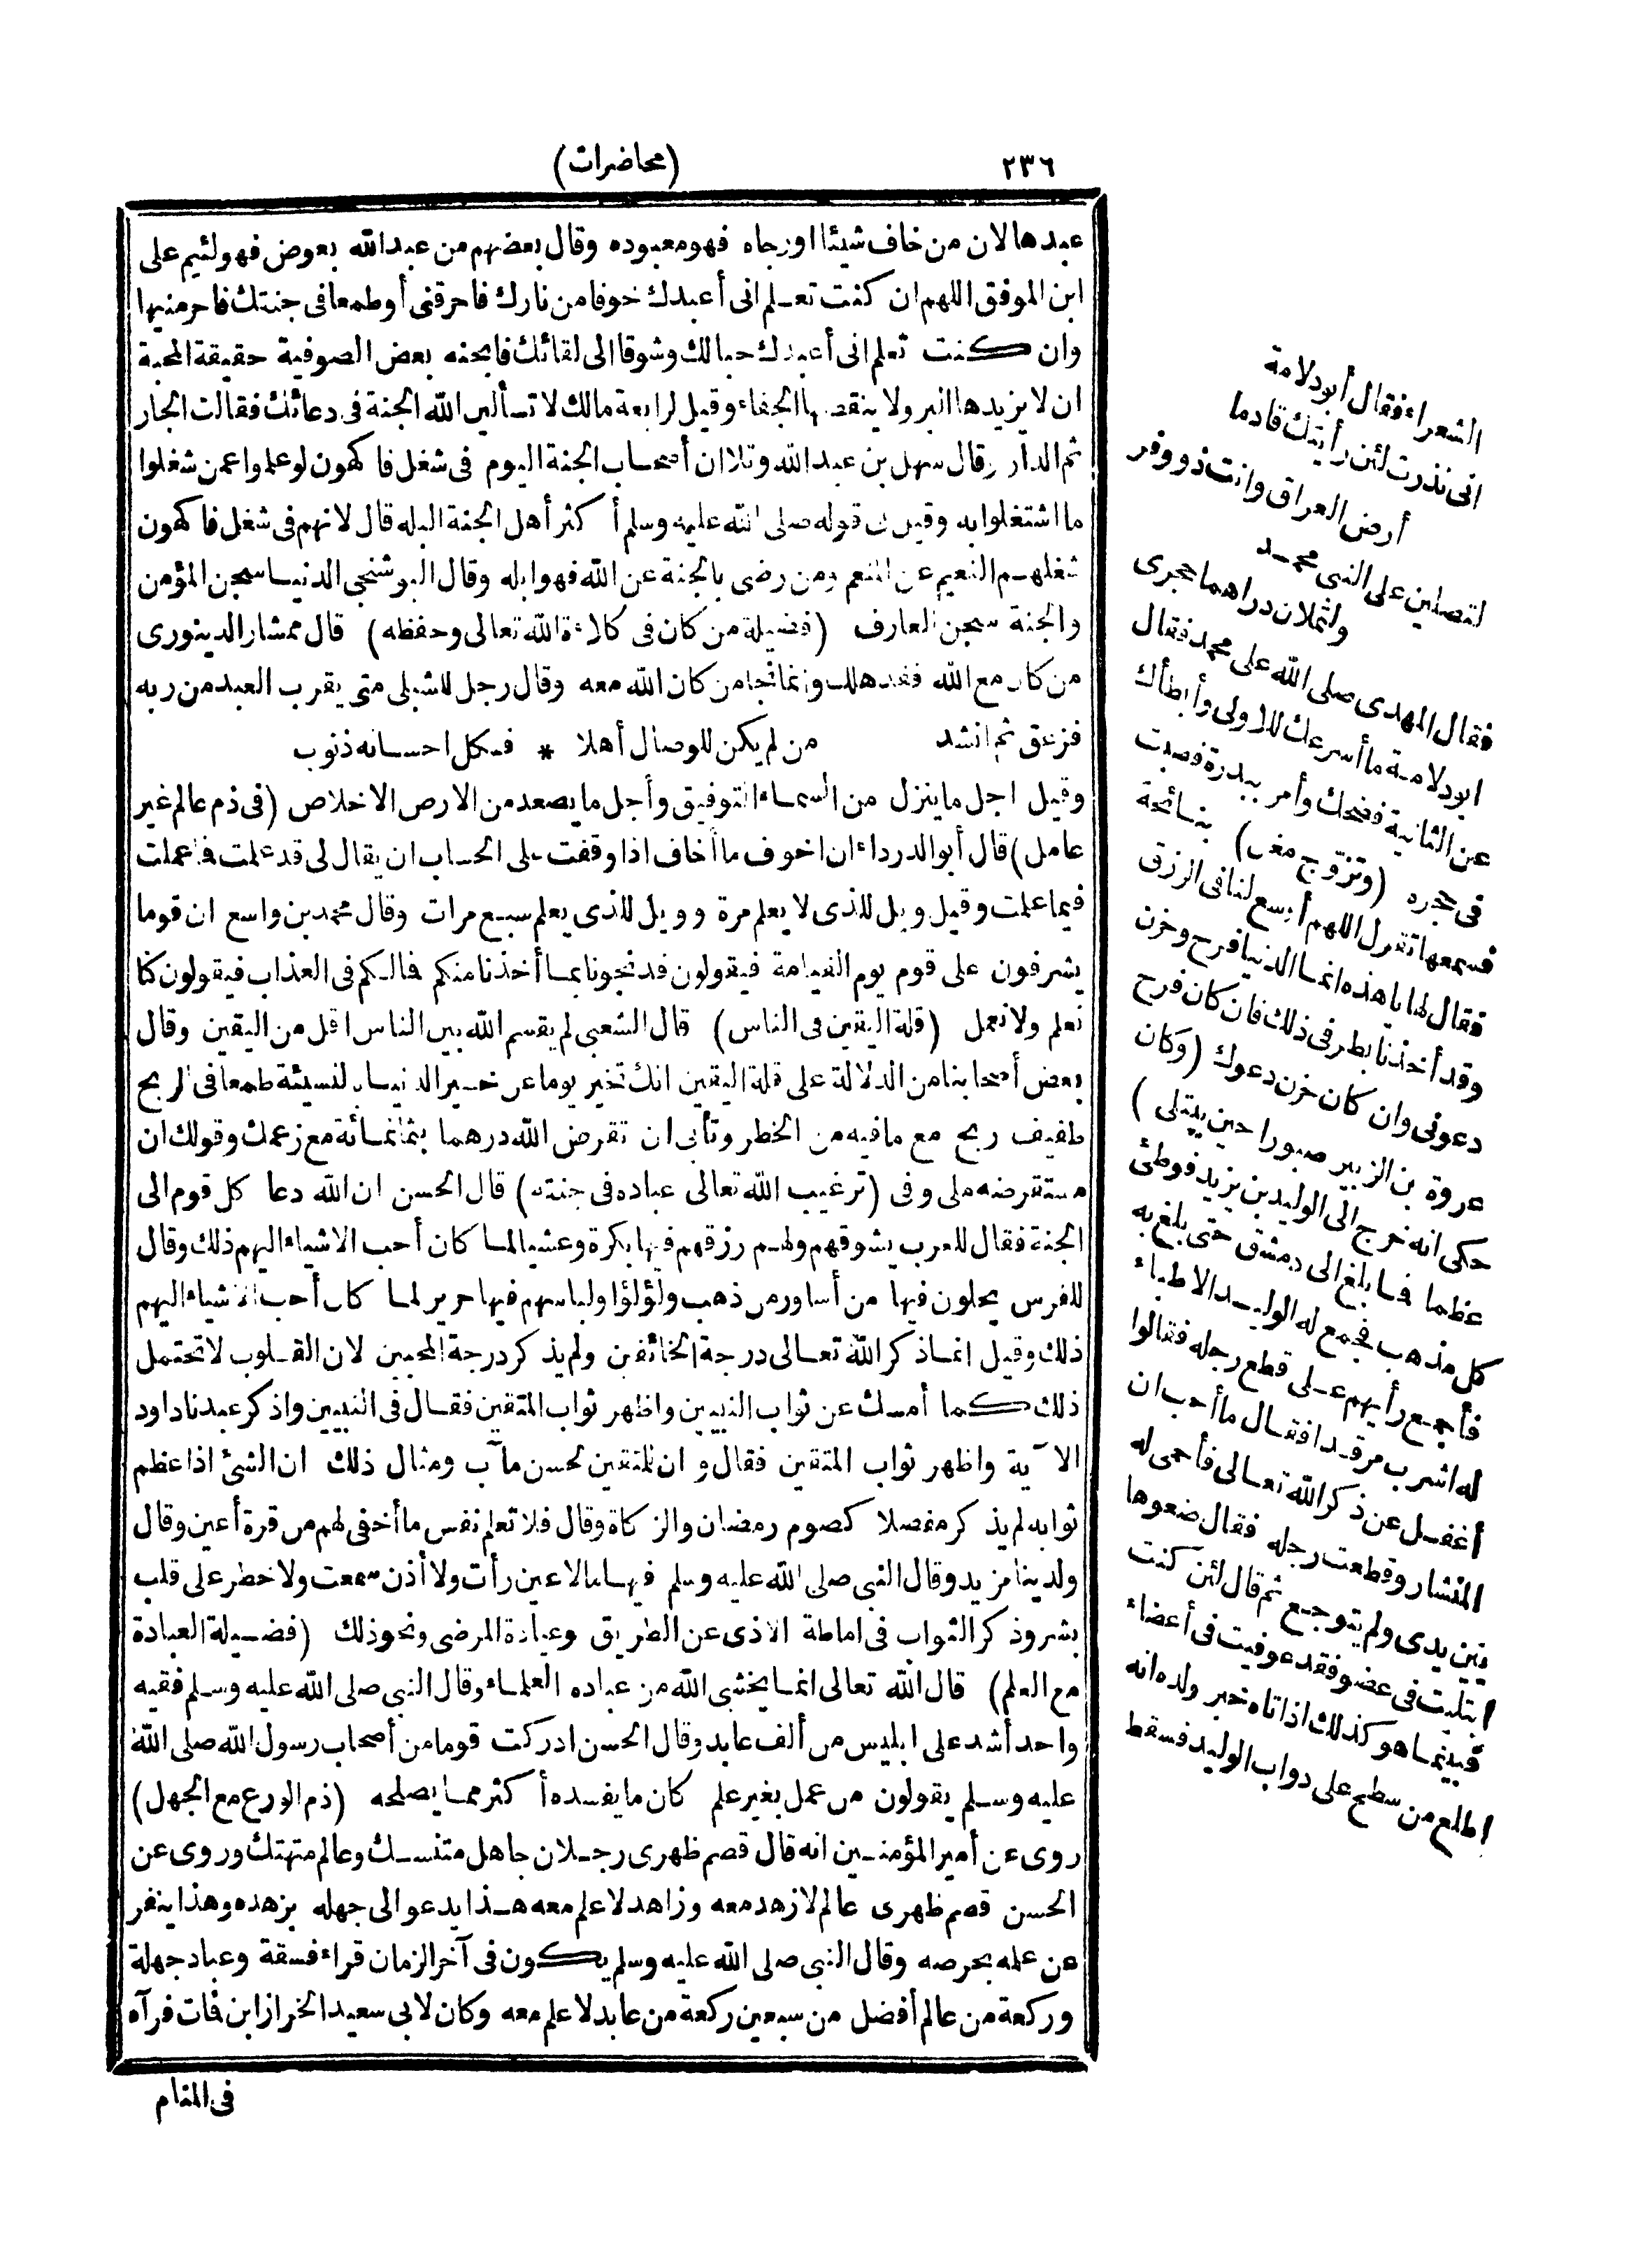 ٢٣٦
(محاضرات)
عبدها لان من خاف شيئا اورجاه فهو معبوده وقال بعضهم من عبد الله بعوض فهو لئيم على
ابن الموفق اللهم ان كنت تعلم انى أعبدك خوفا من نارك فاحرقنى أوطمعا فى جنتك فاحرمنيها
وان كنت تعلم انى أعبدك حبا لك وشوقا الى لقائك فابحنه بعض الصوفية حقيقة المحبة
ان لا يزيدها البر ولا ينقصها الجفاء وقيل لرابعة مالك لا تسألين الله الجنة فى دعائك فقالت الجار
ثم الدار وقال سهل بن عبد الله وتلا ان أصحاب الجنة اليوم فى شغل فاكهون لوعلموا عمن شغلوا
ما اشتغلوا به وقيل فى قوله صلى الله عليه وسلم أكثر أهل الجنة البله قال لانهم فى شغل فاكهون
شغلهم النعيم عن المنعم ومن رضى بالجنة عن الله فهو ابله وقال البوشنجى الدنيا سجن المؤمن
والجنة سجن العارف (فضيلة من كان فى كلاءة الله تعالى وحفظه) قال ممشار الدينورى
من كان مع الله فقد هلك وانما نجا من كان الله معه وقال رجل للشبلى متى يقرب العبد من ربه
فزعق ثم انشد من لم يكن للوصال أهلا * فكل احسانه ذنوب
وقيل اجل ما ينزل من السماء التوفيق وأجل ما يصعد من الارض الاخلاص (فى ذم عالم غير
عامل) قال أبو الدرداء ان اخوف ما أخاف اذا وقفت على الحساب ان يقال لى قد علمت فما عملت
فيما علمت وقيل ويل للذى لا يعلم مرة وويل للذى يعلم سبع مرات وقال محمد بن واسع ان قوما
يشرفون على قوم يوم القيامة فيقولون قد نجونا بما أخذنا منكم فمالكم فى العذاب فيقولون كنا
نعلم ولا نعمل (قلة اليقين فى الناس) قال الشعبى لم يقسم الله بين الناس اقل من اليقين وقال
بعض أصحابنا من الدلالة على قلة اليقين انك تخير يوما عن خير الدنيا بالنسيئة طمعا فى ربح
طفيف ربح مع ما فيه من الخطر وتأبى ان تقرض الله درهما بثمانمائة مع زعمك وقولك ان
مستقرضه ملى وفى (ترغيب الله تعالى عباده فى جنته) قال الحسن ان الله دعا كل قوم الى
الجنة فقال للعرب يشوقهم ولهم رزقهم فيها بكرة وعشيا لما كان أحب الاشياء اليهم ذلك وقال
للفرس يحلون فيها من أساور من ذهب ولؤلؤا ولباسهم فيها حرير لما كان أحب الاشياء اليهم
ذلك وقيل انما ذكر الله تعالى درجة الخائفين ولم يذكر درجة المحبين لان القلوب لا تحتمل
ذلك كما أمسك عن ثواب النبيين واظهر ثواب المتقين فقال فى النبيين واذكر عبدنا داود
الآية واظهر ثواب المتقين فقال وان للمتقين لحسن مآب ومثال ذلك ان الشئ اذا عظم
ثوابه لم يذكر مفصلا كصوم رمضان والزكاة وقال فلا تعلم نفس ما أخفى لهم من قرة أعين وقال
ولدينا مزيد وقال النبى صلى الله عليه وسلم فيها مالا عين رأت ولا أذن سمعت ولا خطر على قلب
بشر وذكر الثواب فى اماطة الاذى عن الطريق وعيادة المرضى ونحو ذلك (فضيلة العبادة
مع العلم) قال الله تعالى انما يخشى الله من عباده العلماء وقال النبى صلى الله عليه وسلم فقيه
واحد أشد على ابليس من ألف عابد وقال الحسن ادركت قوما من أصحاب رسول الله صلى الله
عليه وسلم يقولون من عمل بغير علم كان ما يفسده أكثر مما يصلحه (ذم الورع مع الجهل)
روى عن أمير المؤمنين انه قال قصم ظهرى رجلان جاهل متنسك وعالم متهتك وروى عن
الحسن قصم ظهرى عالم لا زهد معه وزاهد لا علم معه هذا يدعو الى جهله بزهده وهذا ينفر
عن علمه بحرصه وقال النبى صلى الله عليه وسلم يكون فى آخر الزمان قراء فسقة وعباد جهلة
وركعة من عالم أفضل من سبعين ركعة من عابد لا علم معه وكان لابى سعيد الخراز ابن فمات فرآه
فى المنام
الشعراء فقال أبو دلامة
انى نذرت لئن رأيتك قادما
أرض العراق وانت ذو وفر
لتصلين على النبى محمد
ولتملأن دراهما حجرى
فقال المهدى صلى الله على محمد فقال
ابو دلامة ما أسرعك للاولى وأبطأك
عن الثانية فضحك وأمر ببدرة فصبت
فى حجره (وتزوج مغن) بنائحة
فسمعها تقول اللهم أوسع لنا فى الرزق
فقال لها يا هذه انما الدنيا فرح وحزن
وقد أخذنا بطرفى ذلك فان كان فرح
دعونى وان كان حزن دعوك (وكان
عروة بن الزبير صبورا حين يبتلى)
حكى انه خرج الى الوليد بن يزيد فوطئ
عظما فما بلغ الى دمشق حتى بلغ به
كل مذهب فجمع له الوليد الاطباء
فأجمع رأيهم على قطع رجله فقالوا
له اشرب مرقدا فقال ما أحب ان
أغفل عن ذكر الله تعالى فأحمى له
المنشار وقطعت رجله فقال ضعوها
بين يدى ولم يتوجع ثم قال لئن كنت
ابتليت فى عضو فقد عوفيت فى أعضاء
فبينما هو كذلك اذ اتاه خبر ولده انه
اطلع من سطح على دواب الوليد فسقط